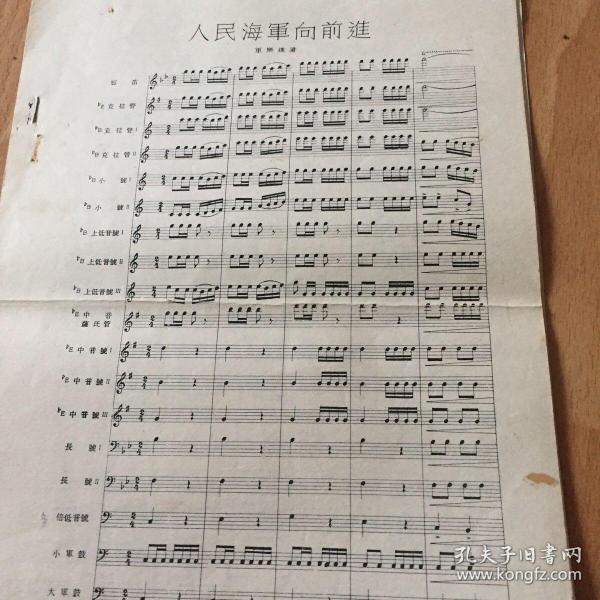 人民海軍向前進
軍樂總譜
短笛
♭E克拉管
♭B克拉管I
♭B克拉管II
♭B小號I
♭B小號II
♭B上低音號I
♭B上低音號II
♭B上低音號III
♭E中音
薩氏管
♭E中音號I
♭E中音號II
♭E中音號III
長號I
長號II
倍低音號
小軍鼓
大軍鼓
孔夫子旧書网
www.kongfz.com